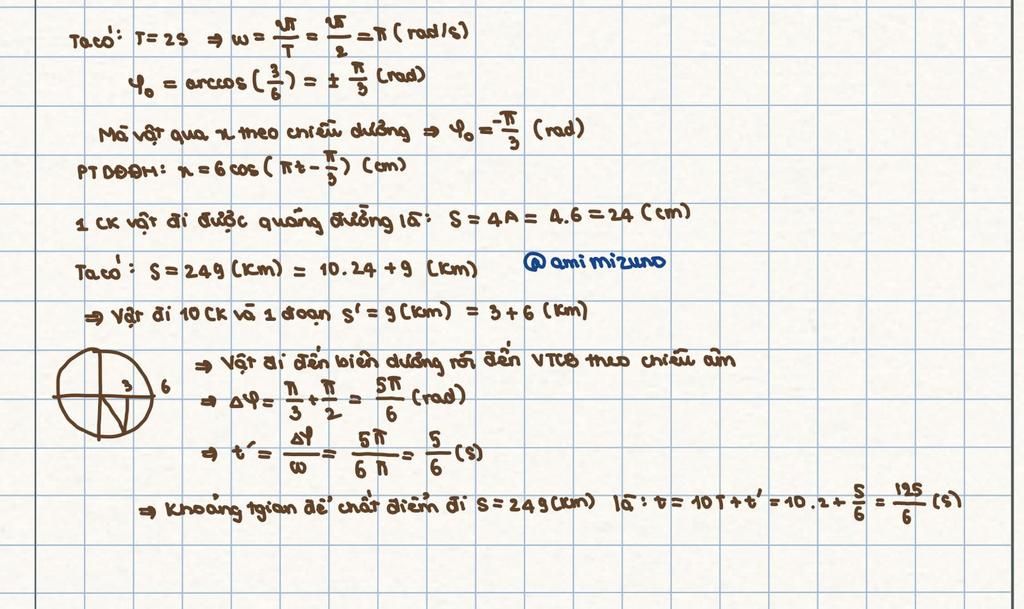 Ta có: T = 2s ⇒ ω = 2π/T = 2π/2 = π (rad/s)
φ₀ = arccos(3/6) = ± π/3 (rad)
Mà vật qua x theo chiều dương ⇒ φ₀ = -π/3 (rad)
PTDĐĐH: x = 6cos(πt - π/3) (cm)
1 CK vật đi được quãng đường là: S = 4A = 4.6 = 24 (cm)
Ta có: S = 249 (km) = 10.24 + 9 (km)
@amimizuno
⇒ Vật đi 10 CK và 1 đoạn s' = 9 (km) = 3 + 6 (km)
3 6
⇒ Vật đi đến biên dương rồi đến VTCB theo chiều âm
⇒ Δφ = π/3 + π/2 = 5π/6 (rad)
⇒ t' = Δφ/ω = 5π/6π = 5/6 (s)
⇒ Khoảng tgian để chất điểm đi S = 249 (km) là: t = 10T + t' = 10.2 + 5/6 = 125/6 (s)